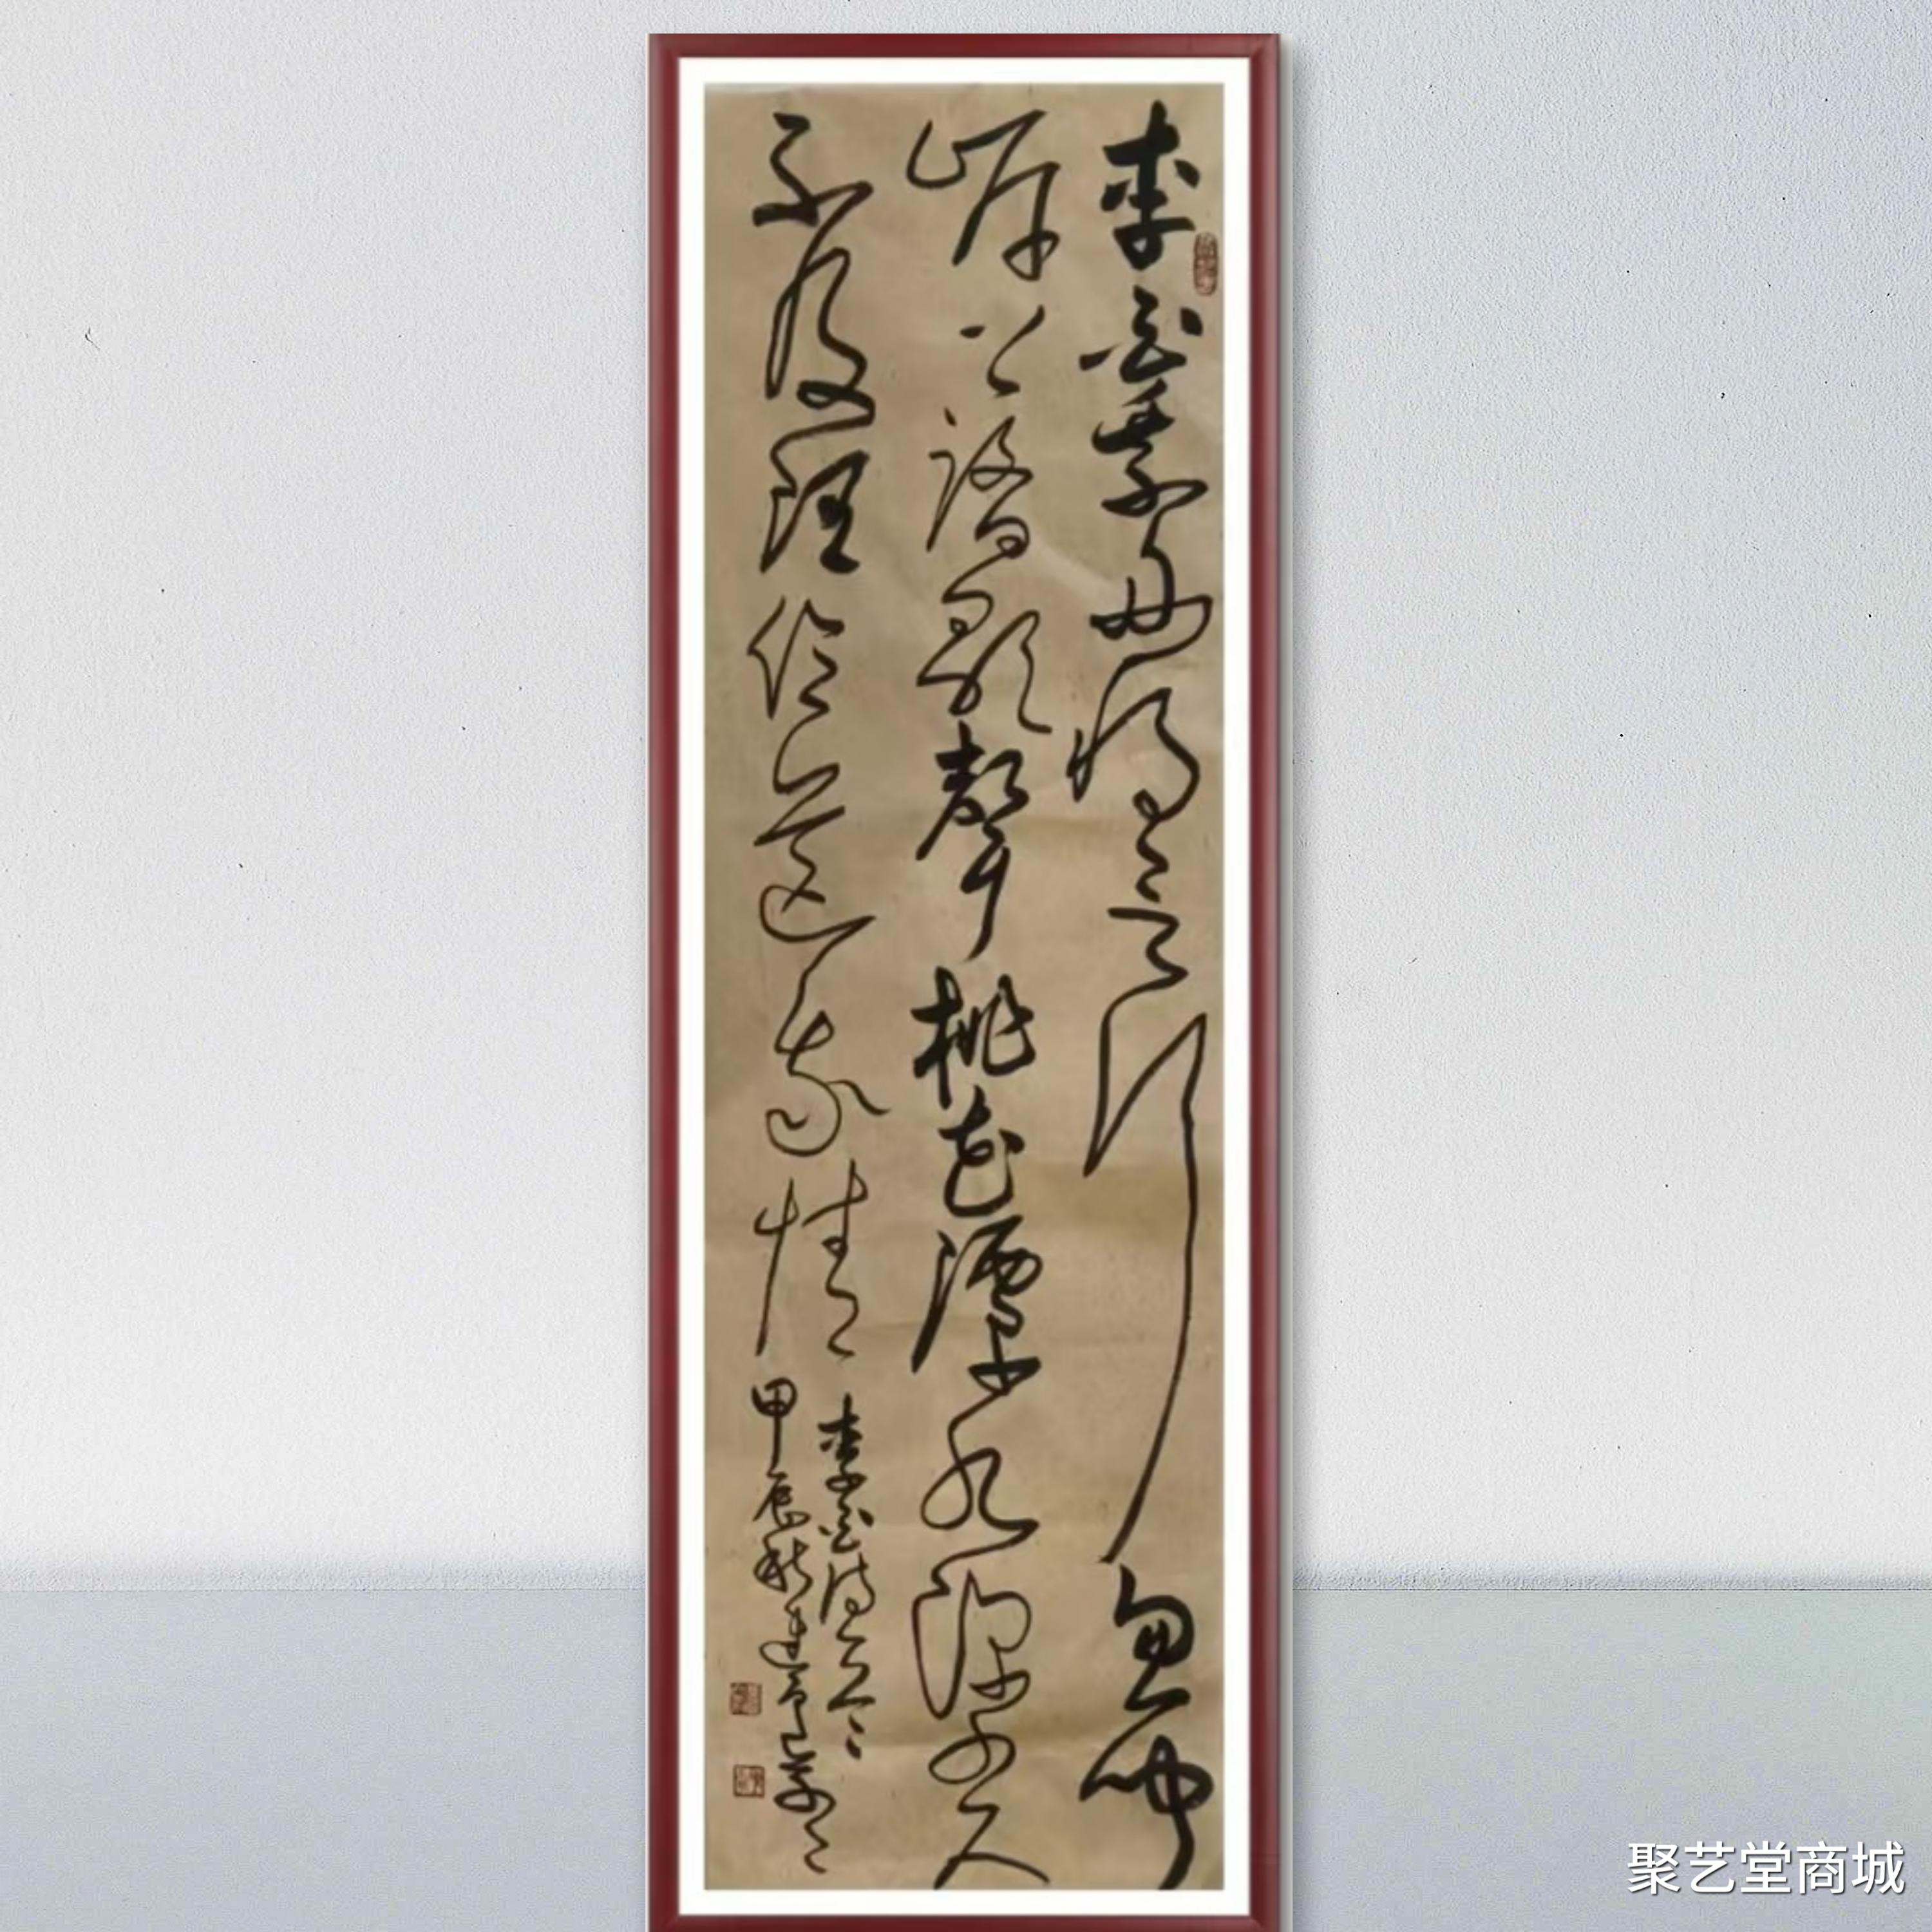 李白乘舟将欲行忽闻
岸上踏歌聲桃花潭水深千尺
不及汪伦送我情
李白诗一首
甲辰秋建
聚艺堂商城